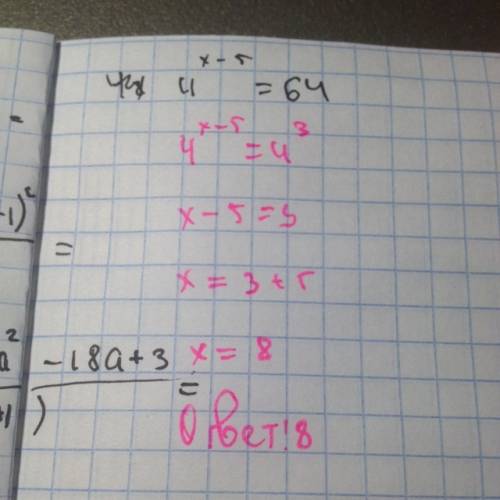 4^(x-5) = 64
4^(x-5) = 4^3
x - 5 = 3
x = 3 + 5
x = 8
Ответ! 8
-1)^2
=
a^2 - 18a + 3
+1) =